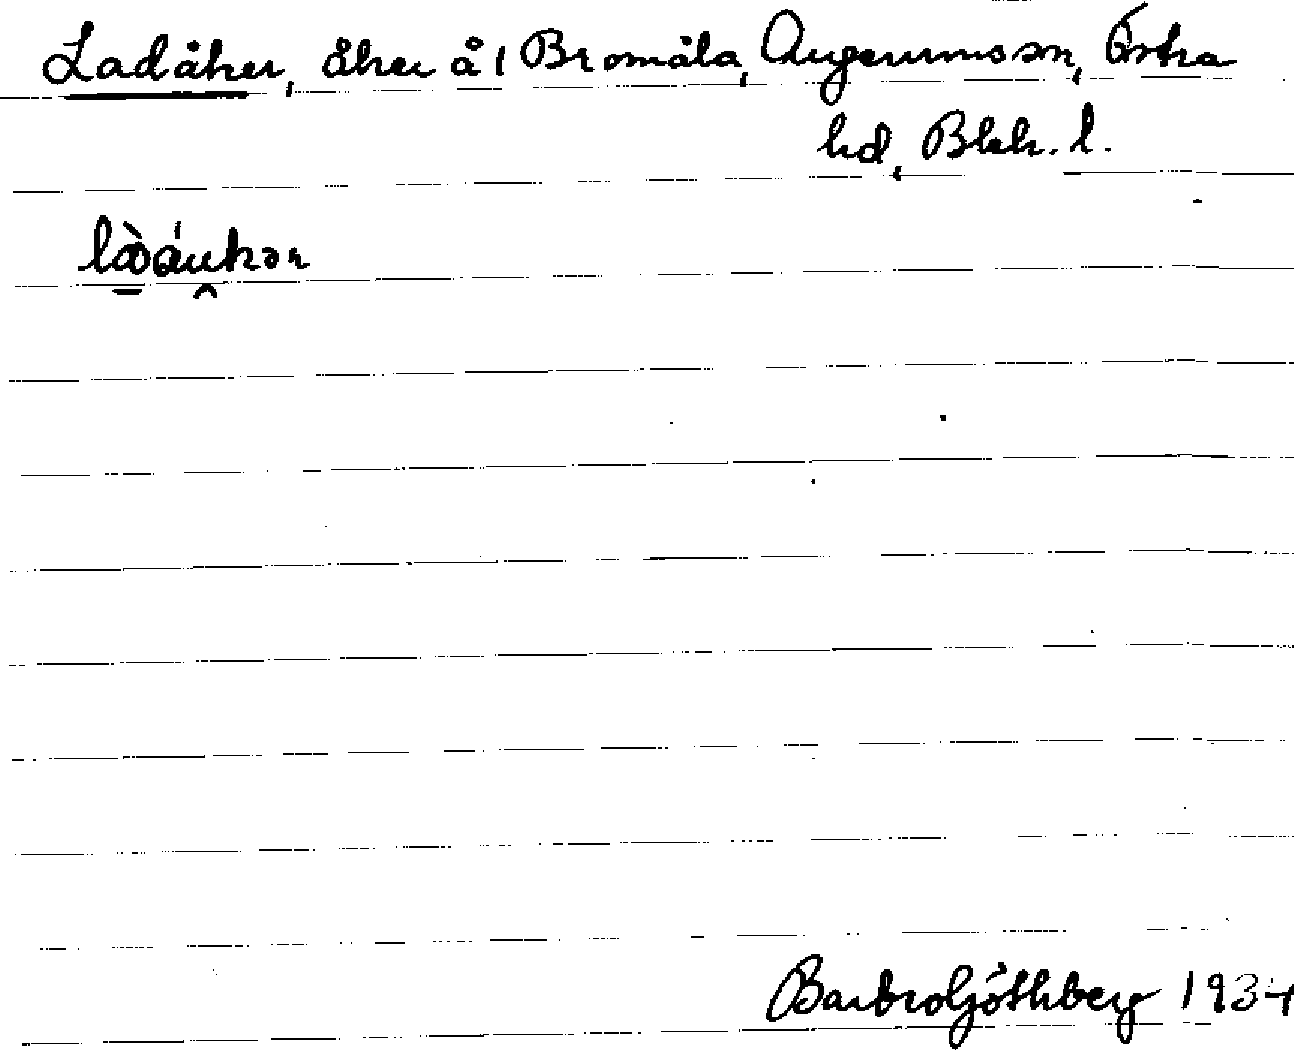 Ladåker, åker å 1 Bromåla, Augerums sn, Östra
hd, Blek. l.
Barbro Göthberg 1934